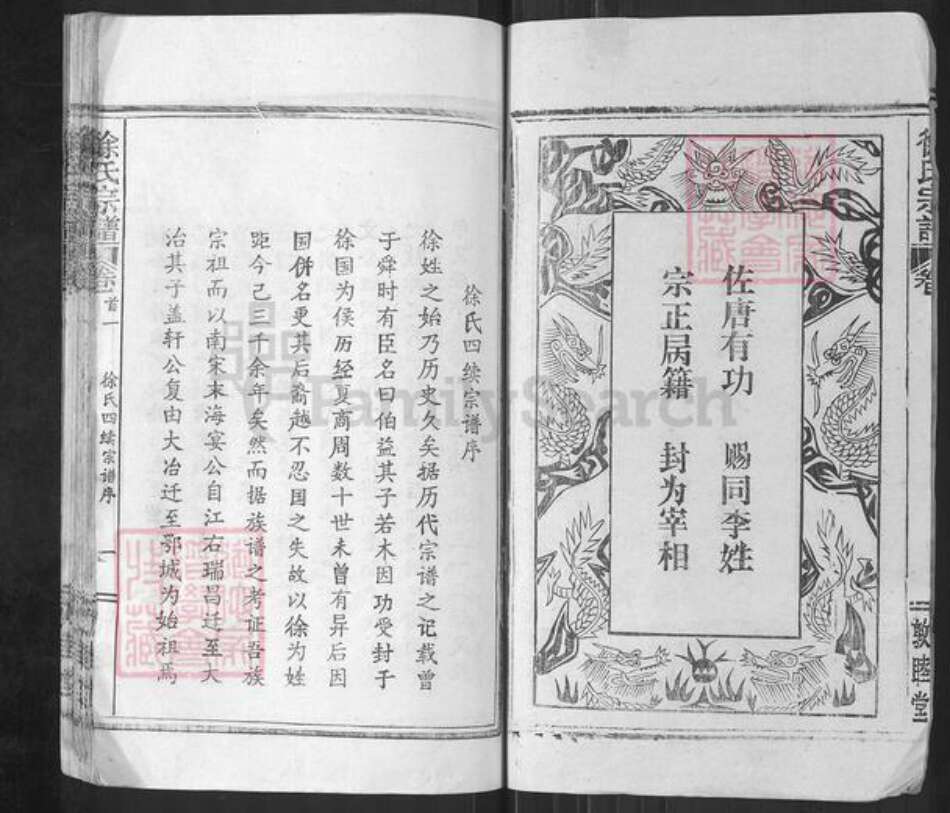 徐氏宗谱
卷
敦睦堂
佐唐有功 赐同李姓
宗正属籍 封为宰相
徐氏四续宗谱序
徐姓之始乃历史久矣据历代宗谱之记载曾
于舜时有臣名曰伯益其子若木因功受封于
徐国为侯历经夏商周数十世未曾有异后因
国併名更其后裔越不忍国之失故以徐为姓
距今已三千余年矣然而据族谱之考证吾族
宗祖而以南宋末海宴公自江右瑞昌迁至大
治其子盖轩公复由大冶迁至鄂城为始祖焉
徐氏宗谱
卷首一
徐氏四续宗谱序
一
FamilySearch